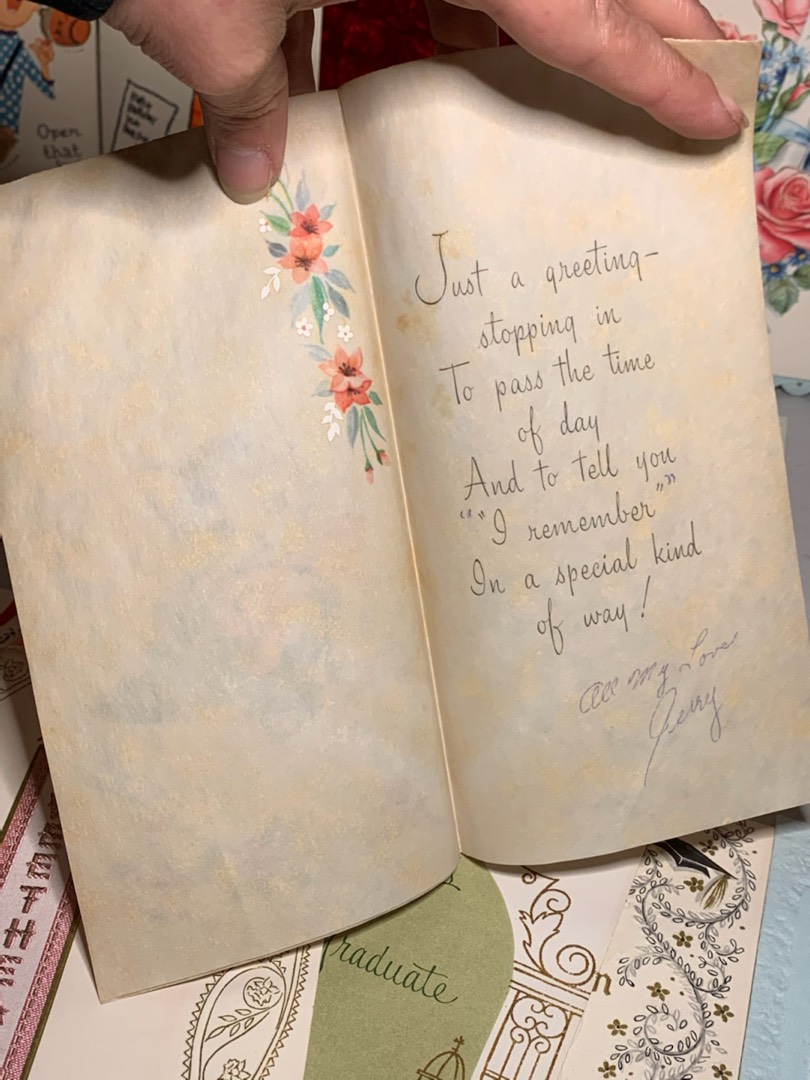 Open
that
Just a greeting-
stopping in
To pass the time
of day
And to tell you
"“I remember”"
In a special kind
of way!
All My Love
Jerry
raduate